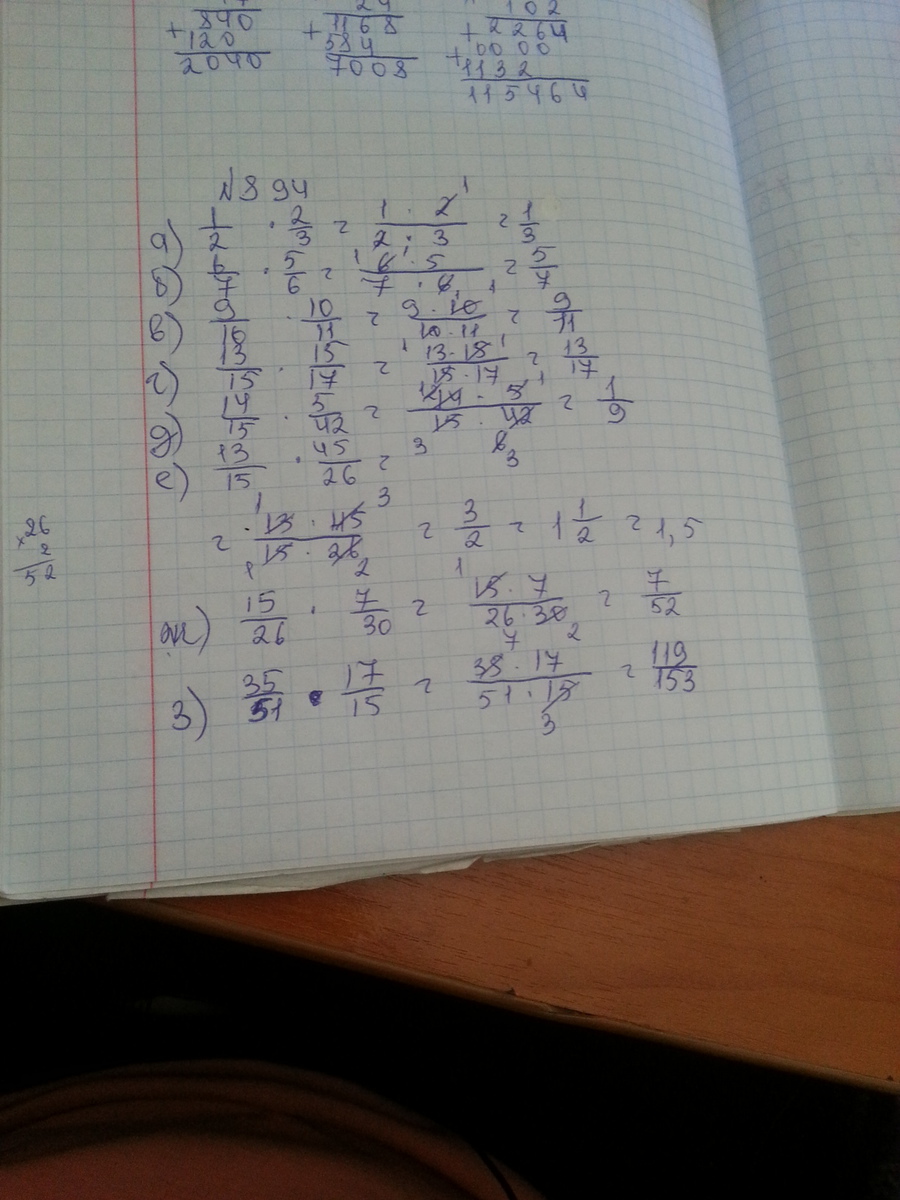 840 1168 102
+ 120 + 584 + 2264
2040 7008 + 0000
1132
115464
№ 894
а) 1/2 · 2/3 = 1 · 2/2 · 3 = 1/3
б) 6/7 · 5/6 = 6 · 5/7 · 6 = 5/7
в) 9/10 · 10/11 = 9 · 10/10 · 11 = 9/11
г) 13/15 · 15/17 = 13 · 15/15 · 17 = 13/17
д) 14/15 · 5/42 = 14 · 5/15 · 42 = 1/9
е) 13/15 · 45/26 =
= 13 · 45/15 · 26 = 3/2 = 1 1/2 = 1,5
26
× 2
52
ж) 15/26 · 7/30 = 15 · 7/26 · 30 = 7/52
з) 35/51 · 17/15 = 38 · 17/51 · 15 = 119/153